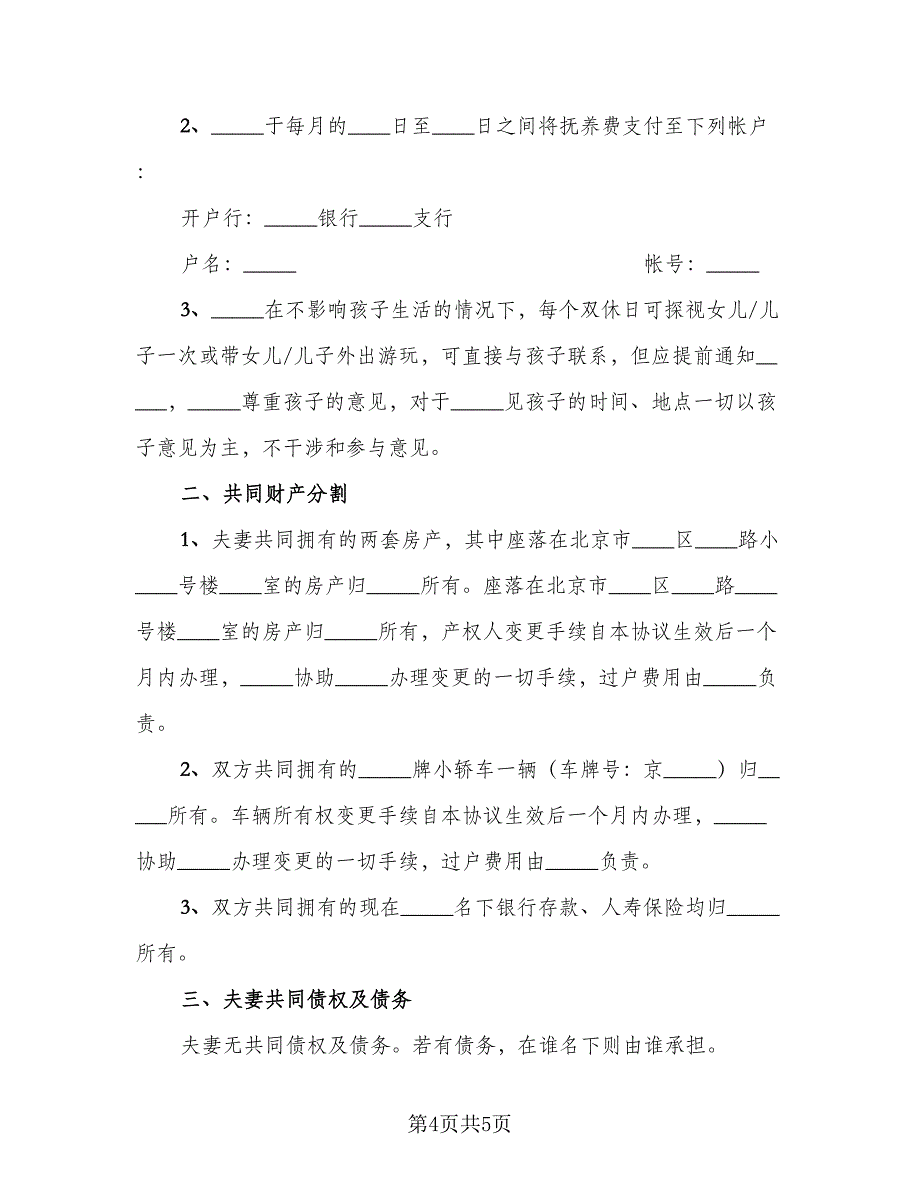 2、_____于每月的____日至____日之间将抚养费支付至下列帐户
：
开户行：_____银行_____支行
户名：_____ 帐号：_____
3、_____在不影响孩子生活的情况下，每个双休日可探视女儿/儿
子一次或带女儿/儿子外出游玩，可直接与孩子联系，但应提前通知__
___，_____尊重孩子的意见，对于_____见孩子的时间、地点一切以孩
子意见为主，不干涉和参与意见。
二、共同财产分割
1、夫妻共同拥有的两套房产，其中座落在北京市____区____路小
____号楼____室的房产归_____所有。座落在北京市____区____路____
号楼____室的房产归_____所有，产权人变更手续自本协议生效后一个
月内办理，_____协助_____办理变更的一切手续，过户费用由_____负
责。
2、双方共同拥有的_____牌小轿车一辆（车牌号：京_____）归__
___所有。车辆所有权变更手续自本协议生效后一个月内办理，_____
协助_____办理变更的一切手续，过户费用由_____负责。
3、双方共同拥有的现在_____名下银行存款、人寿保险均归_____
所有。
三、夫妻共同债权及债务
夫妻无共同债权及债务。若有债务，在谁名下则由谁承担。
第4页共5页